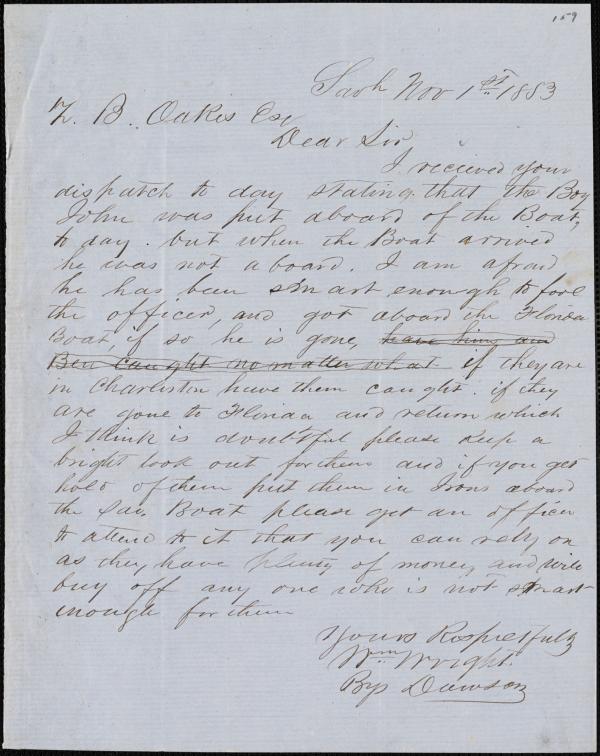 159
Savh Nov 1st 1853
Z. B. Oakes Esq
Dear Sir
I received your
dispatch to day stating that the Boy
John was put aboard of the Boat,
to day. but when the Boat arrived
he was not aboard. I am afraid
he has been smart enough to fool
the officer, and got aboard the Florida
Boat, if so he is gone, have him and
Ben caught no matter what if they are
in Charleston have them caught. if they
are gone to Florida and return which
I think is doubtful please keep a
bright look out for them and if you get
hold of them put them in Irons aboard
the Sav. Boat please get an officer
to attend to it that you can rely on
as they have plenty of money, and will
buy off any one who is not smart
enough for them
Yours Respectfully
Wm Wright.
By Dawson